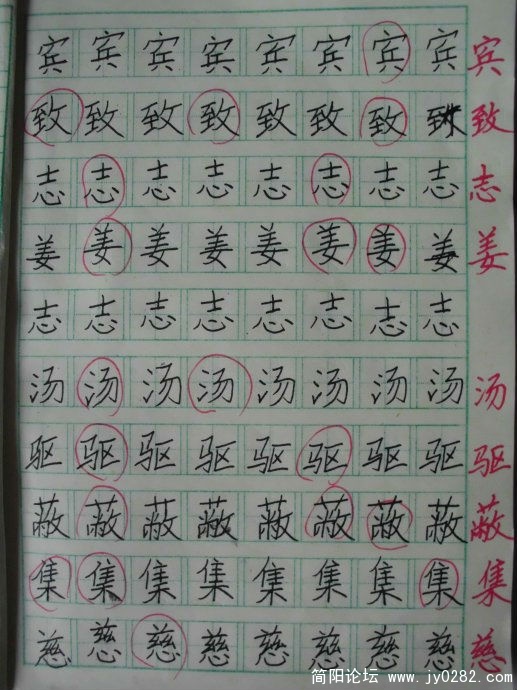 宾宾宾宾宾宾宾宾宾
致致致致致致致致
志志志志志志志志志
姜姜姜姜姜姜姜姜姜
志志志志志志志志
汤汤汤汤汤汤汤汤汤
驱驱驱驱驱驱驱驱驱
蔽蔽蔽蔽蔽蔽蔽蔽蔽
集集集集集集集集集
慈慈慈慈慈慈慈慈慈
简阳论坛 www.jy0282.com